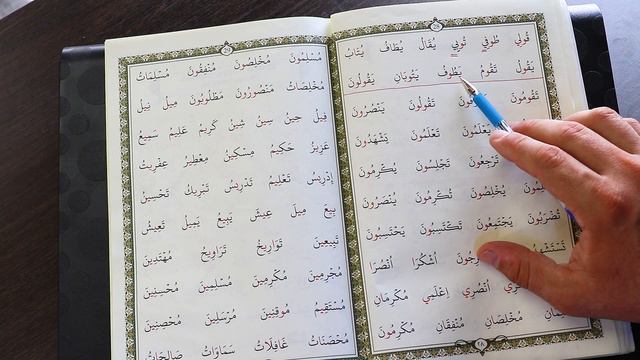 قُولِي طُوفِي تُوبِي يُقَالُ يُطَافُ يُتَابُ
يَقُولُ تَقُومُ يَطُوفُ يَتُوبَانِ يَقُولُونَ
تَقُومُونَ تَقُولُونَ يَنْصُرُونَ
يَعْلَمُونَ تَعْلَمُونَ يَشْهَدُونَ
تَرْجِعُونَ تَجْلِسُونَ يُكْرِمُونَ
يُخْلِصُونَ تُكْرِمُونَ يُنْصَرُونَ
تُضْرَبُونَ يَجْتَمِعُونَ تَكْتَسِبُونَ يَحْتَسِبُونَ
أُشْكُرَا أُنْصُرَا
أُنْصُرِي اِعْلَمِي مُكْرِمَانِ
مُخْلِصَانِ مُنْفِقَانِ مُكْرِمُونَ
٢٨
٢٩
مُسْلِمُونَ مُخْلِصُونَ مُنْفِقُونَ مُسْلِمَاتٌ
مُخْلِصَاتٌ مَنْصُورُونَ مَظْلُوبُونَ مِيلَ نِيلَ
فِيلَ حِينَ سِينَ شِينُ كَرِيمُ عَلِيمُ سَمِيعُ
عَزِيزُ حَكِيمُ مِسْكِينُ مِعْطِيرُ عِفْرِيتُ
إِدْرِيسُ تَعْلِيمُ تَدْرِيسُ تَبْرِيكُ تَحْسِينُ
بِيعَ مِيلَ عِيشَ يَبِيعُ يَمِيلُ تَعِيشُ
تَبِيعِينَ تَوَارِيخُ تَرَاوِيحُ مُهْتَدِينَ
مُجْرِمِينَ مُكْرِمِينَ مُسْلِمِينَ مُحْسِنِينَ
مُسْتَقِيمُ مُوقِنِينَ مُرْسَلِينَ مُحْصِنِينَ
مُحْصَنَاتُ غَافِلَاتُ سَمَاوَاتُ صَالِحَاتُ